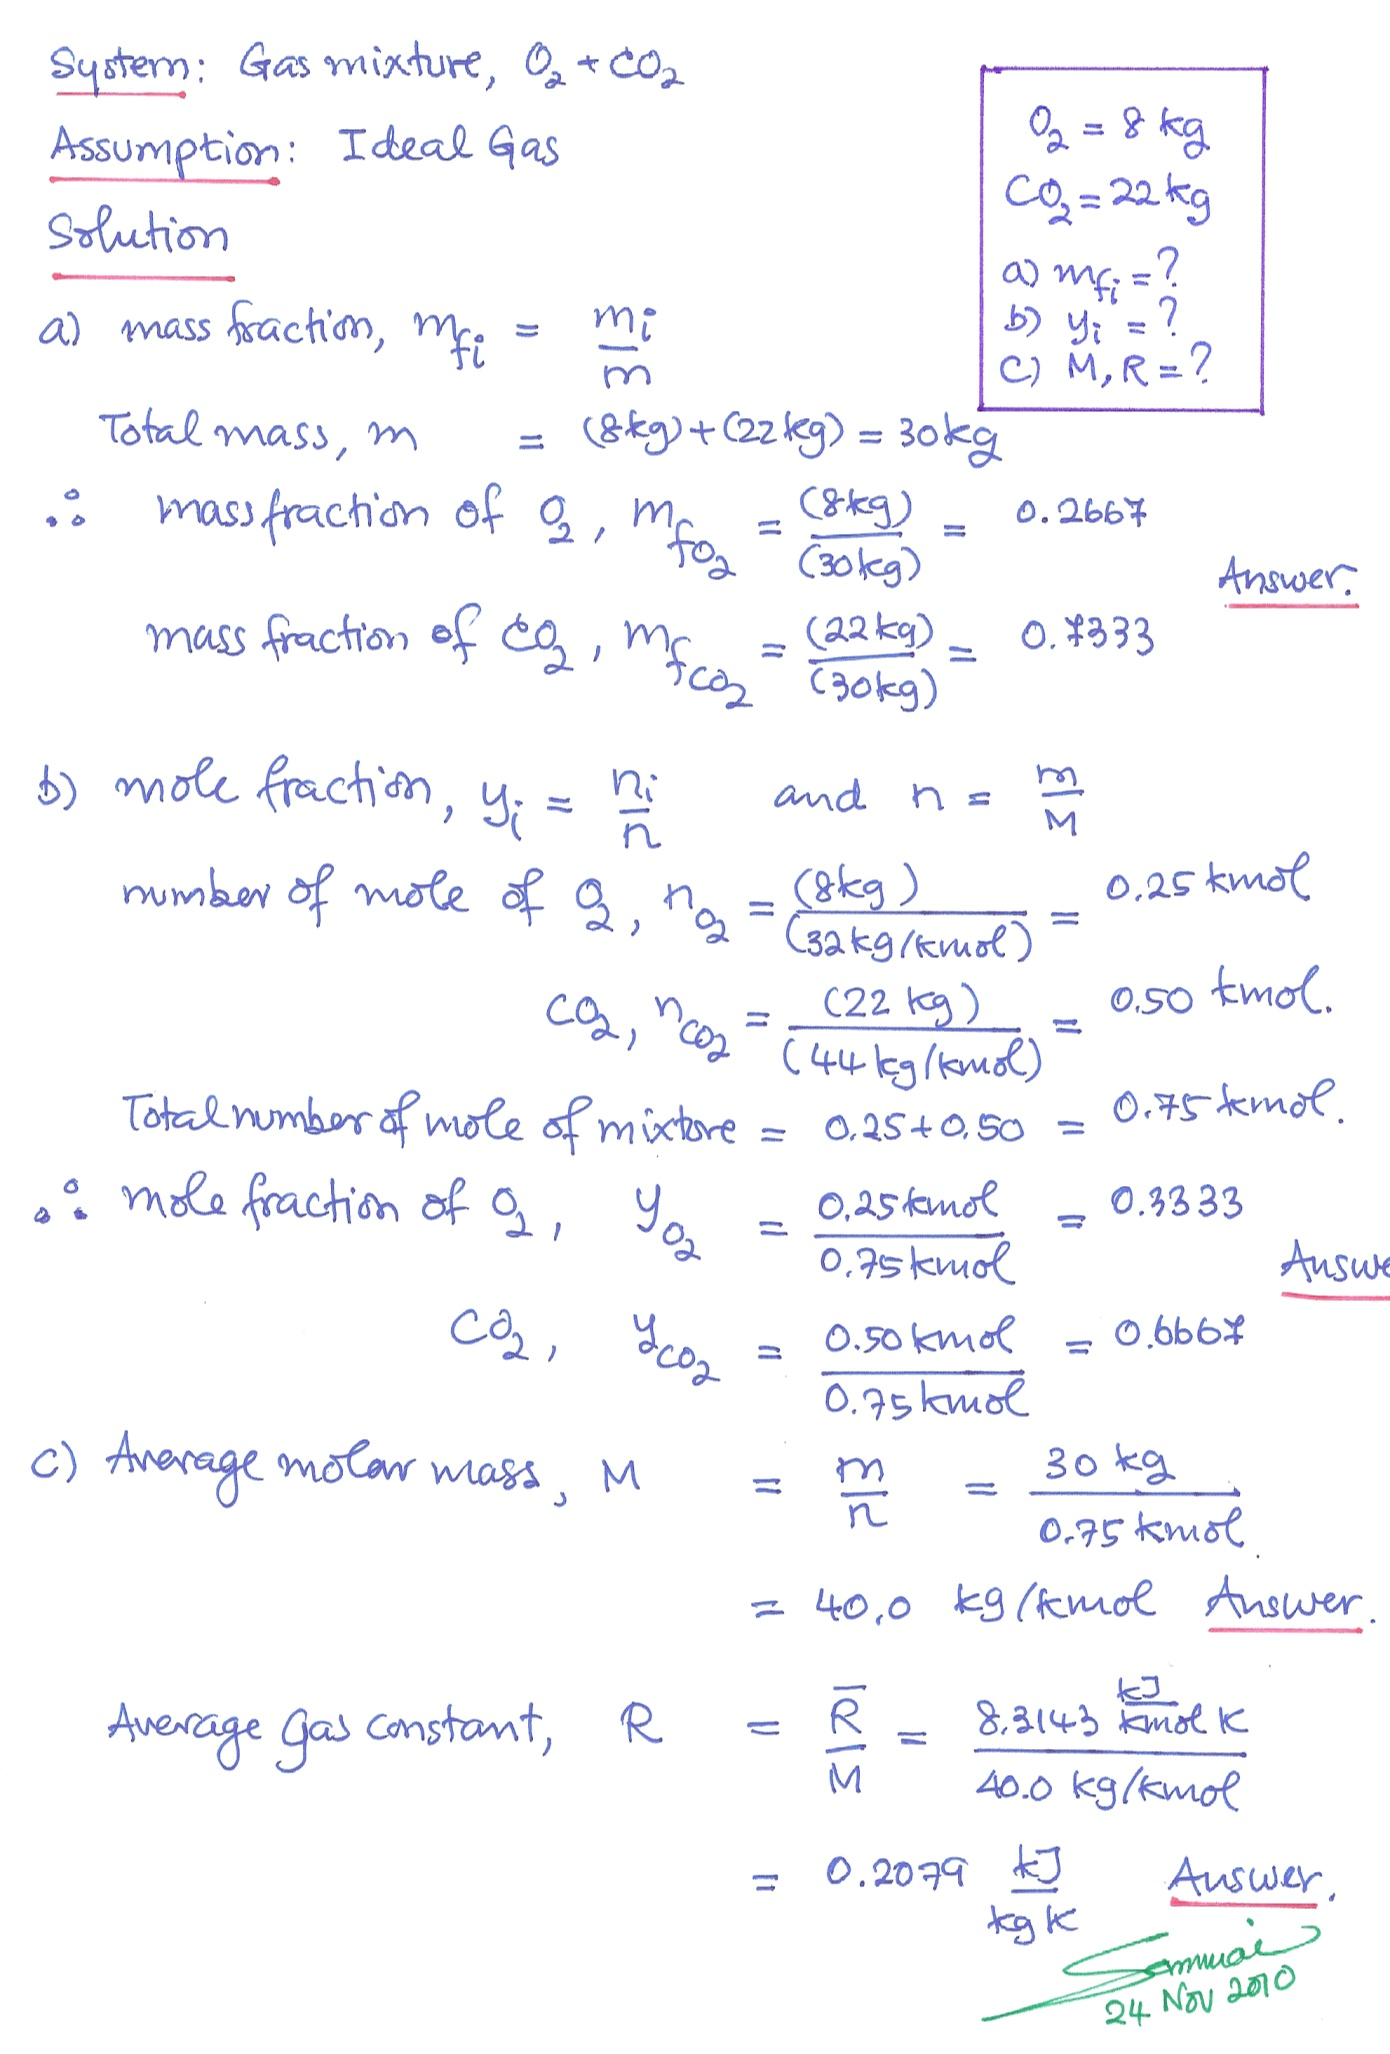 System: Gas mixture, O₂ + CO₂
Assumption: Ideal Gas
Solution
O₂ = 8 kg
CO₂ = 22 kg
a) mfi = ?
b) yi = ?
C) M, R = ?
a) mass fraction, mfi = mi / m
Total mass, m = (8kg) + (22kg) = 30kg
∴ mass fraction of O₂, mfO₂ = (8kg) / (30kg) = 0.2667
Answer.
mass fraction of CO₂, mfCO₂ = (22kg) / (30kg) = 0.7333
b) mole fraction, yi = ni / n and n = m / M
number of mole of O₂, nO₂ = (8kg) / (32kg/kmol) = 0.25 kmol
CO₂, nCO₂ = (22 kg) / (44 kg/kmol) = 0.50 kmol.
Total number of mole of mixture = 0.25 + 0.50 = 0.75 kmol.
∴ mole fraction of O₂, yO₂ = 0.25 kmol / 0.75 kmol = 0.3333
Answe
CO₂, yCO₂ = 0.50 kmol / 0.75 kmol = 0.6667
c) Average molar mass, M = m / n = 30 kg / 0.75 kmol
= 40.0 kg/kmol Answer.
Average gas constant, R = R̅ / M = 8.3143 kJ/kmol K / 40.0 kg/kmol
= 0.2079 kJ / kg K Answer.
24 Nov 2010